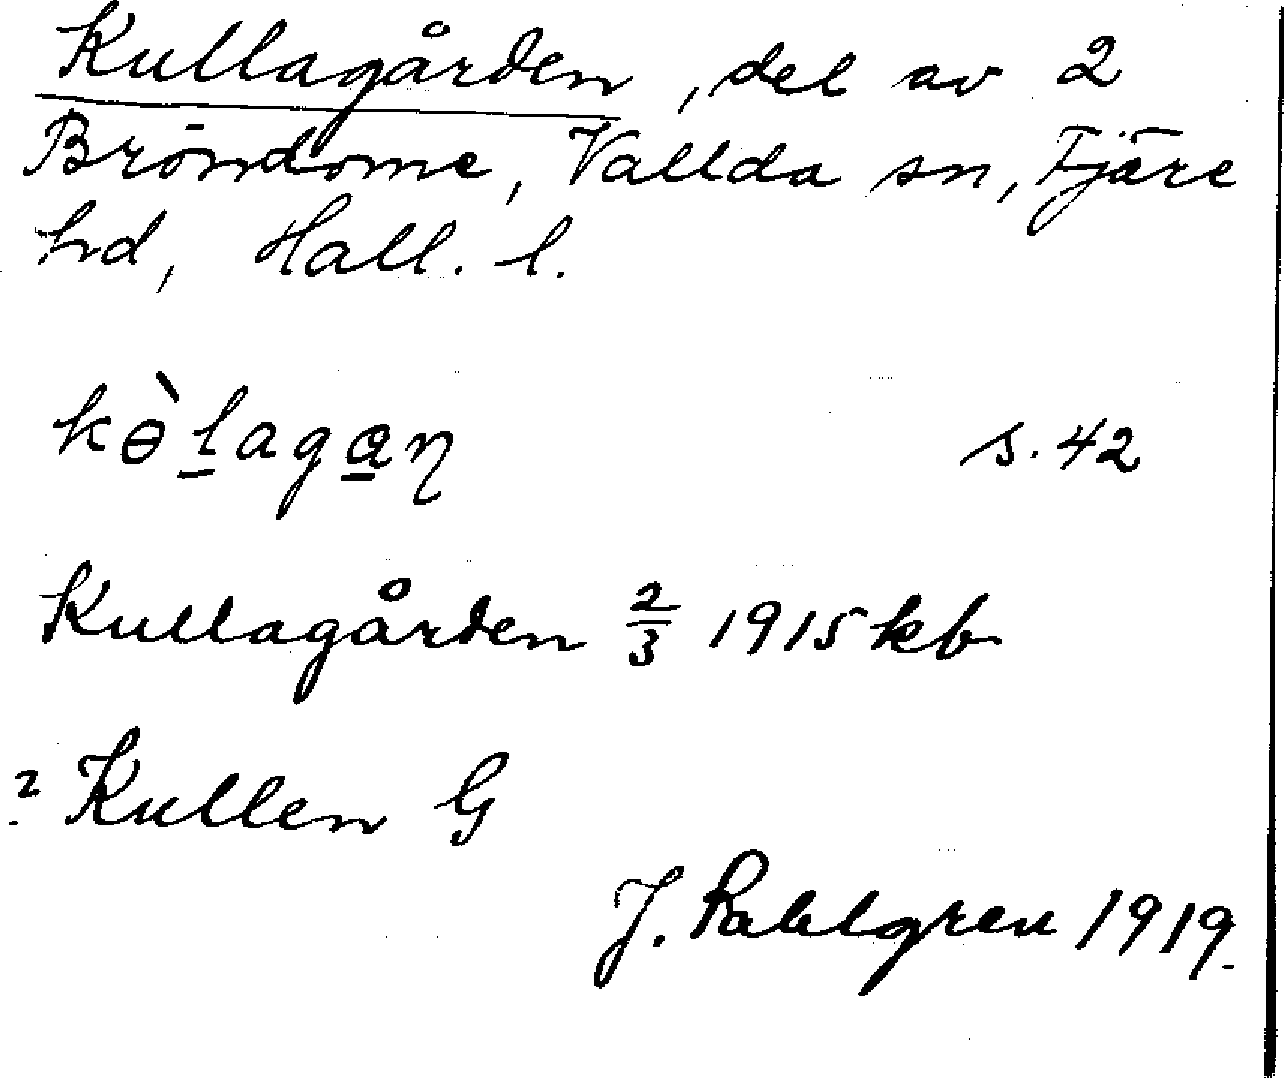 Kullagården, del av 2
Bröndome, Vallda sn, Fjäre
hd, Hall. l.
kɵ̀l̲aga̲ŋ s. 42
Kullagården 2/3 1915 kb
? Kullen G
J. Sahlgren 1919.